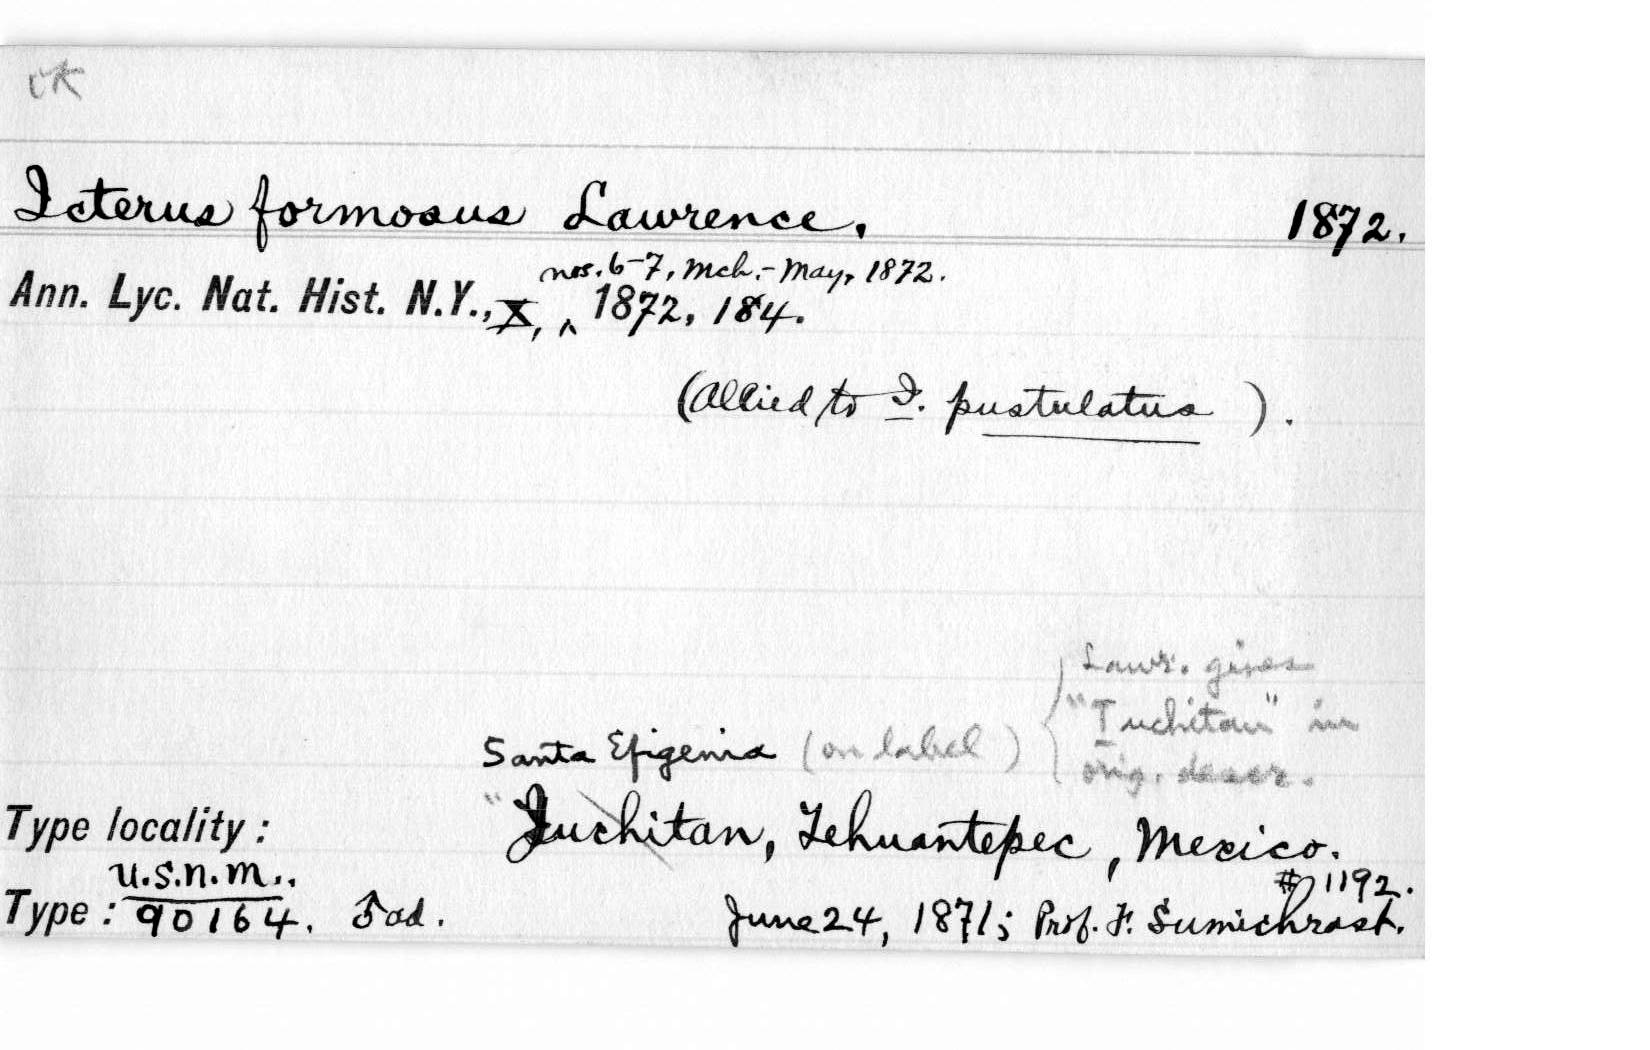 ok
Icterus formosus Lawrence. 1872.
nos. 6-7, Mch.-May, 1872.
Ann. Lyc. Nat. Hist. N.Y., X, ^ 1872, 184.
(Allied to I. pustulatus ).
Lawr. gives
"Tuchitan" in
orig. descr.
Santa Efigenia (on label)
Type locality: "Juchitan, Tehuantepec, Mexico.
U.S.N.M.. #1192.
Type: 90164. ♂ ad. June 24, 1871; Prof. F. Sumichrast.